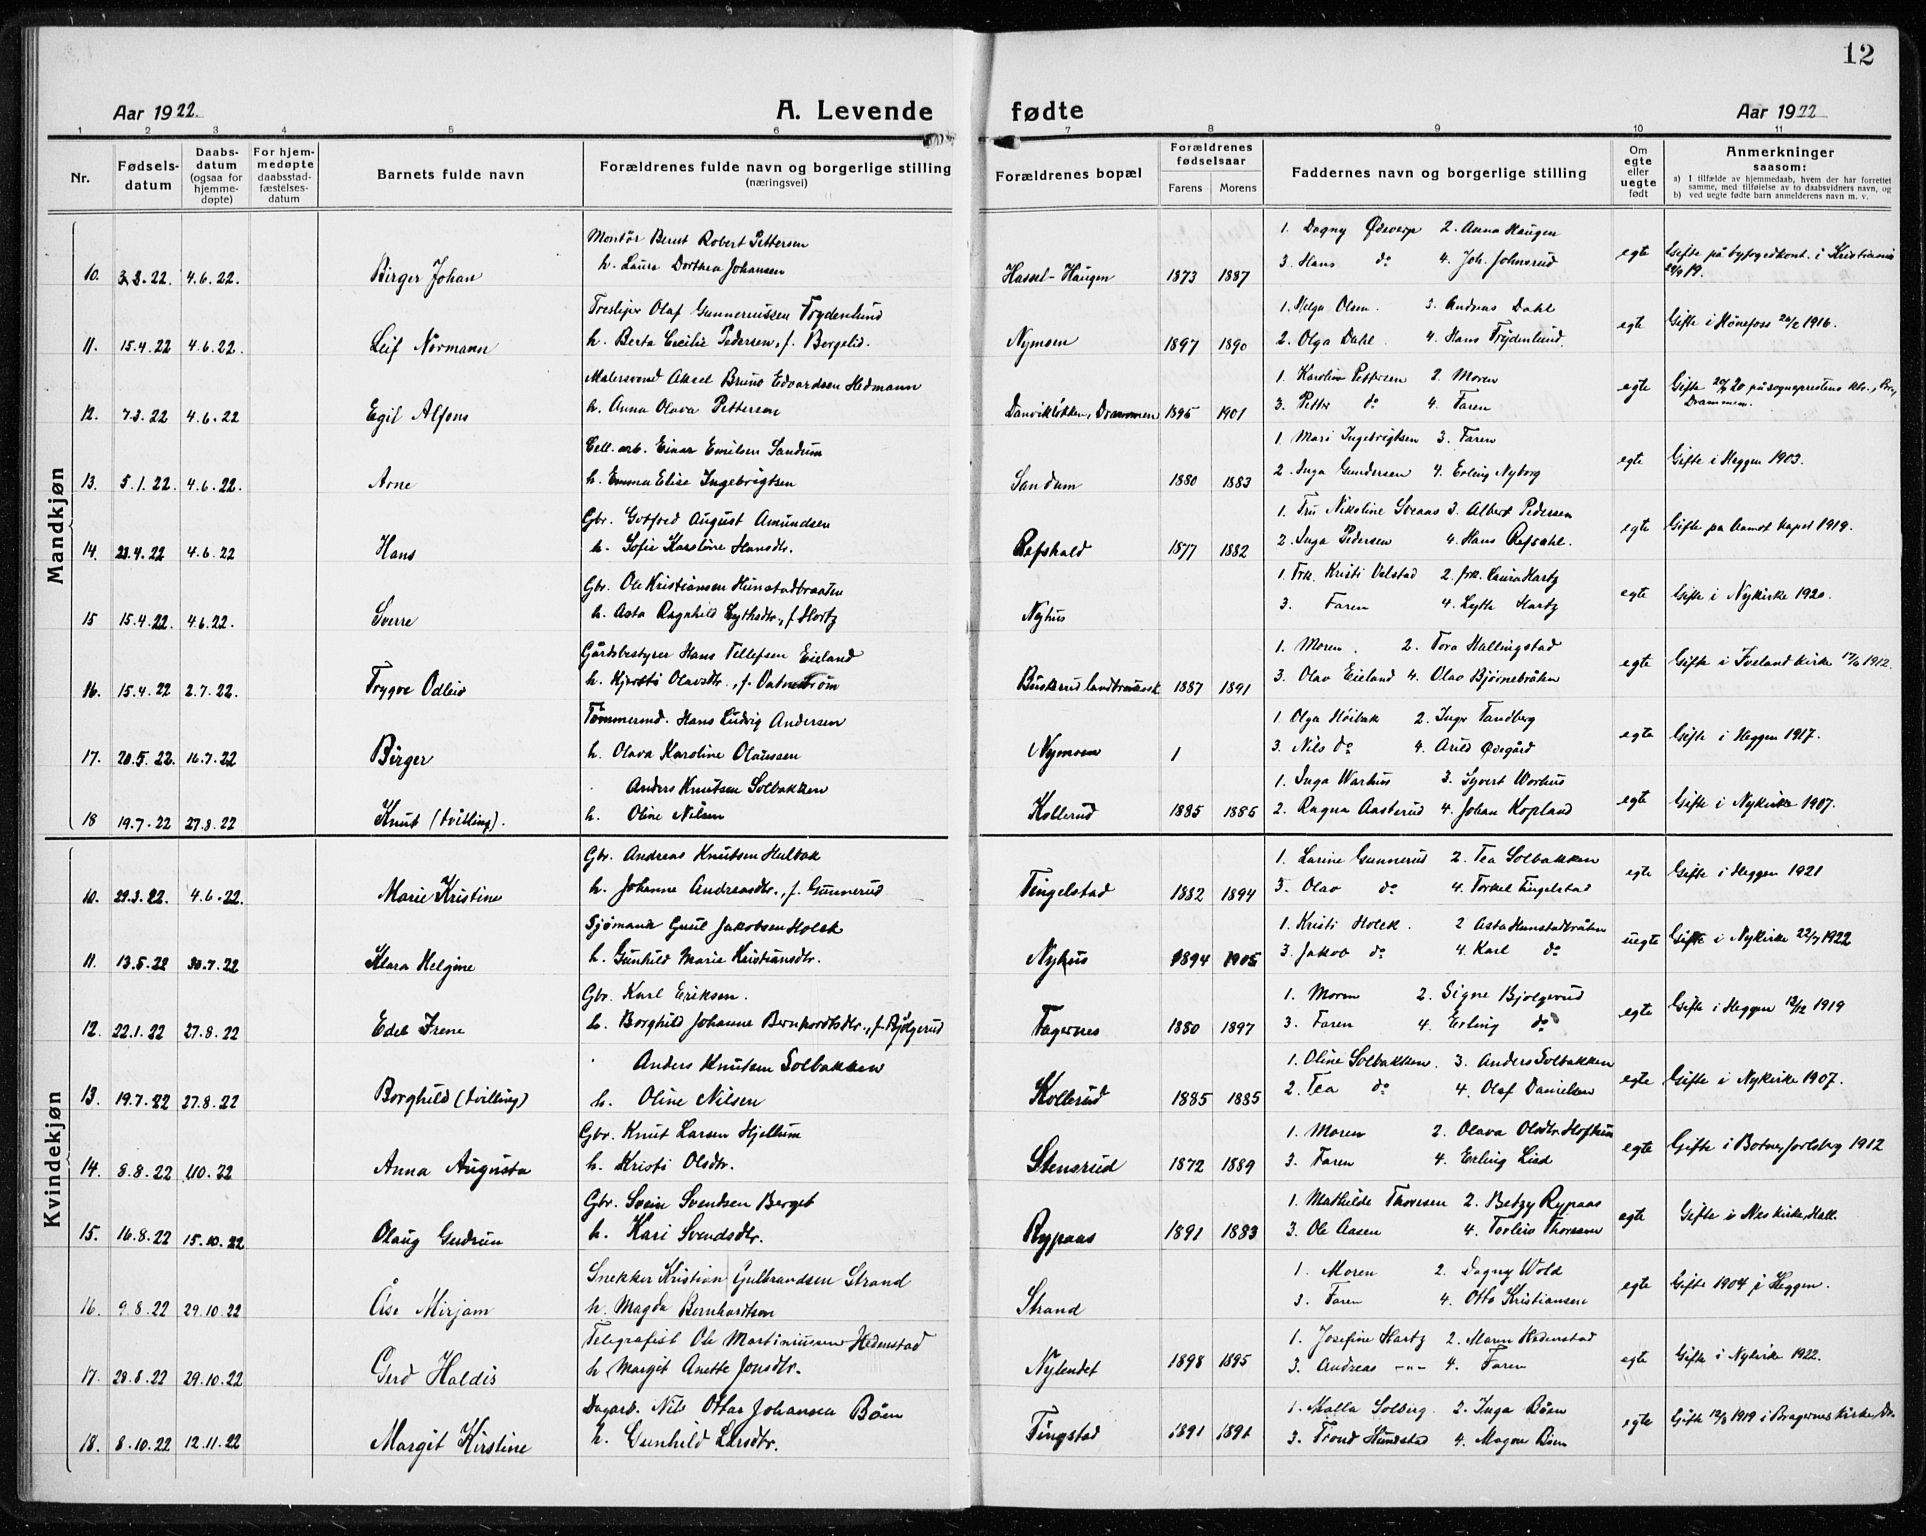 12
Aar 1922. A. Levende fødte Aar 1922
1 2 3 4 5 6 7 8 9 10 11
Nr. Fødsels-datum Daabs-datum (ogsaa for hjemme-døpte) For hjem-medøpte daabsstad-fæstelses-datum Barnets fulde navn Forældrenes fulde navn og borgerlige stilling (næringsvei) Forældrenes bopæl Forældrenes fødselsaar Farens Morens Faddernes navn og borgerlige stilling Om egte eller uegte født Anmerkninger saasom:
a) I tilfælde av hjemmedaab, hvem der har forrettet samme, med tilføielse av to daabsvidners navn, og
b) ved uegte fødte barn anmelderens navn m. v.
Mandkjøn
Montør Bernt Robert Pettersen 1. Dagny Ødeverp 2. Anna Haugen
10. 3.3.22. 4.6.22. Birger Johan h. Laura Dorthea Johansen Hassel-Haugen 1873 1887 3. Hans do 4. Joh. Johnsrud egte Gifte på byfogedkont. i Kristiania
Treslijper Olaf Gunneriussen Frydenlund 1. Helga Olsen. 3. Andreas Dahl
11. 15.4.22 4.6.22. Leif Normann h. Berta Cecilie Pedersen, f. Borgelid. Nymoen 1897 1890 2. Olga Dahl 4. Hans Frydenlund. egte Gifte i Hønefoss 26/2 1916.
Malersvend Aksel Bruno Edvardsen Hedmann 1. Karoline Pettersen 2. Moren
12. 7.3.22 4.6.22 Egil Alfons h. Anna Olava Pettersen Danvikløkken, Drammen 1895 1901 3. Petter do 4. Faren egte Gifte på sogneprestens ktr., Drammen.
Cell. arb. Einar Emilsen Sandum 1. Mari Ingebrigtsen 3. Faren
13. 5.1.22. 4.6.22. Arne h. Emma Elise Ingebrigtsen Sandum 1880 1883 2. Inga Gundersen 4. Erling Nyborg egte Gifte i Heggen 1903.
Gbr. Gotfred August Amundsen 1. Fru Nikoline Sveaas 3. Albert Pedersen
14. 23.4.22 4.6.22 Hans h. Sofie Karoline Hansdtr. Refshald 1877 1882 2. Inga Pedersen 4. Hans Refsahl. egte Gifte pa Aamot kapel 1919.
Gbr. Ole Kristiansen Hunstadbraaten 1. Frk. Kristi Velstad 2. frk. Laura Hartz
15 15.4.22. 4.6.22. Sverre h. Asta Ragnhild Lythsdtr., f. Hartz Nyhus 3. Faren 4. Lyth Hartz egte Gifte i Nykirke 1920.
Gårdsbestyrer Hans Tellefsen Eieland 1. Moren. 2. Tora Hallingstad
16. 15.4.22 2.7.22. Trygve Odleiv h. Kjersti Olavsdtr., f. Vatnestrøm Buskerud landbruksk. 1887 1891 3. Olav Eieland 4. Olav Bjørnebråten egte Gifte i Iveland kirke 1912.
Tømmermd. Hans Ludvig Andersen 1. Olga Høibak 2. Ingr Tandberg
17. 20.5.22. 16.7.22 Birger h. Olava Karoline Olaussen Nymoen 1 3. Nils do 4. Arild Ødegård egte Gifte i Heggen 1917.
Anders Knutsen Solbakken 1. Inga Warhus 3. Syvert Worhus
18 19.7.22 27.8.22 Knut (tvilling). h. Oline Nilsen Kollerud 1885 1885 2. Ragna Aasterud 4. Johan Kopland egte Gifte i Nykirke 1907.
Kvindekjøn
Gbr. Andreas Knutsen Hulbak 1. Larine Gunnerud 2. Tea Solbakken
10. 29.3.22. 4.6.22. Marie Kristine h. Johanne Andreasdtr., f. Gunnerud Tingelstad 1882 1894 3. Olav do 4. Torkel Tingelstad egte Gifte i Heggen 1921
Sjømand Gnul Jakobsen Holek 1. Kristi Holek. 2 Asta Hunstadbråten
11. 13.5.22 30.7.22 Klara Helgine h. Gunhild Marie Kristiansdtr. Nyhus 1894 1905 3. Jakob do 4. Karl do uegte Gifte i Nykirke 22/7 1922
Gbr. Karl Eriksen. 1. Moren 2. Signe Bjølgerud
12. 22.1.22 27.8.22 Edel Irene h. Borghild Johanne Bernhardtsdtr., f. Bjølgerud Fagernes 1880 1897 3. Faren 4. Erling do egte Gifte i Heggen 13/12 1919
Anders Knutsen Solbakken 1. Oline Solbakken. 3. Anders Solbakken
13. 19.7.22 27.8.22 Borghild (tvilling) h. Oline Nilsen Kollerud 1885 1885 2. Tea do 4. Olaf Danielsen egte Gifte i Nykirke 1907.
Gbr. Knut Larsen Hjellum 1. Moren 2. Olava Olsdtr. Hofthun
14. 8.8.22 1.10.22 Anna Augusta h. Kristi Olsdtr. Stensrud 1872 1889 3. Faren 4. Erling Lied egte Gifte i Botne, Jarlsberg 1912
Gbr. Svein Svendsen Berget 1. Mathilde Thoresen 2. Betzy Rypaas
15. 16.8.22 15.10.22 Olaug Gudrun h. Kari Svendsdtr. Rypaas 1891 1883 3. Ole Aasen 4. Torleiv Thoresen egte Gifte i Nes kirke, Hall.
Snekker Kristian Gulbrandsen Strand 1. Moren 2. Dagny Wold
16. 9.8.22 29.10.22 Åse Mirjam h. Magda Bernhardtsen Strand 3. Faren 4. Otto Kristiansen egte Gifte 1904 i Heggen.
Telegrafist Ole Martiniussen Hedenstad 1. Josefine Hartz 2. Maren Hedenstad
17. 28.8.22 29.10.22 Gerd Haldis h. Margit Anette Jonsdtr. Nylendet 1898 1895 3. Andreas -"- 4. Faren egte Gifte i Nykirke 1922.
Dagarb. Nils Ottar Johansen Bøen 1. Malla Solberg. 2. Inga Bøen
18. 8.10.22 12.11.22 Margit Kirstine h. Gunhild Larsdtr. Tingstad 1891 1891 3. Trond Hunstad 4. Magne Bøen egte Gifte 1919 i Bragernes kirke, Dr.